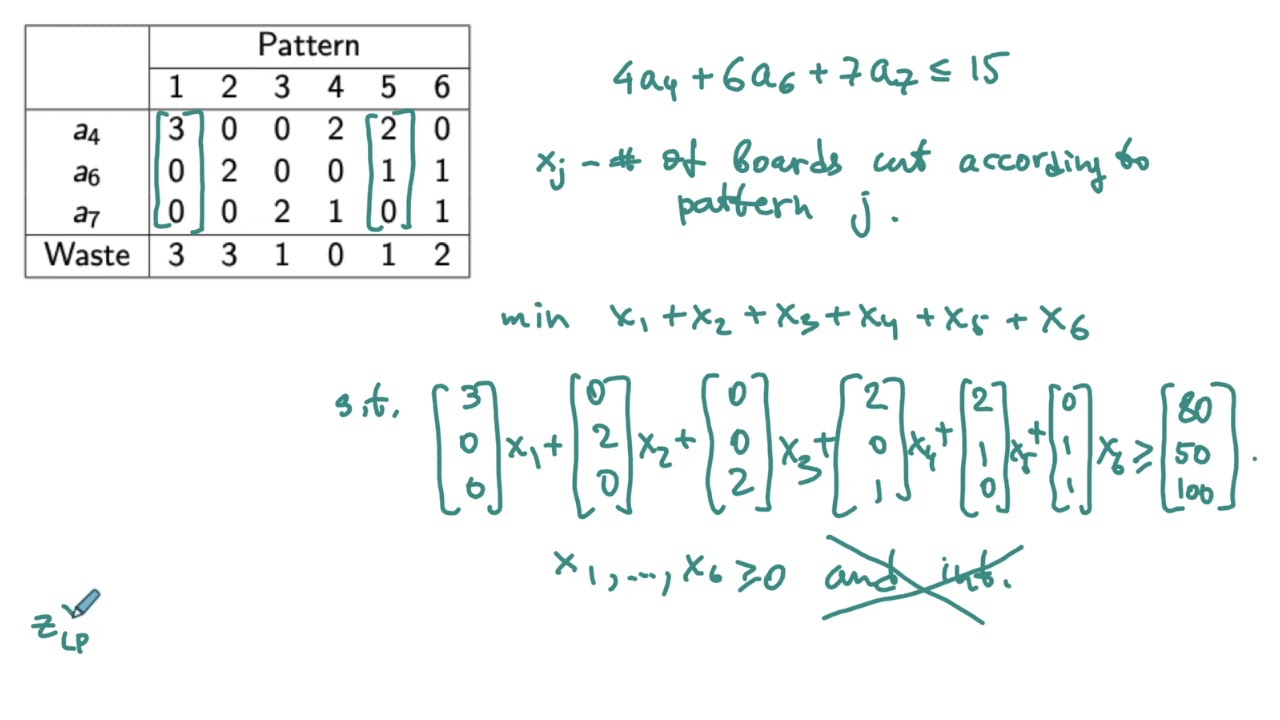 Pattern
1 2 3 4 5 6
a₄ 3 0 0 2 2 0
a₆ 0 2 0 0 1 1
a₇ 0 0 2 1 0 1
Waste 3 3 1 0 1 2
4a₄ + 6a₆ + 7a₇ ≤ 15
xⱼ - # of boards cut according to
pattern j.
min x₁ + x₂ + x₃ + x₄ + x₅ + x₆
s.t. [3 0 0] x₁ + [0 2 0] x₂ + [0 0 2] x₃ + [2 0 1] x₄ + [2 1 0] x₅ + [0 1 1] x₆ ≥ [80 50 100].
x₁, ..., x₆ ≥ 0 and int.
z LP